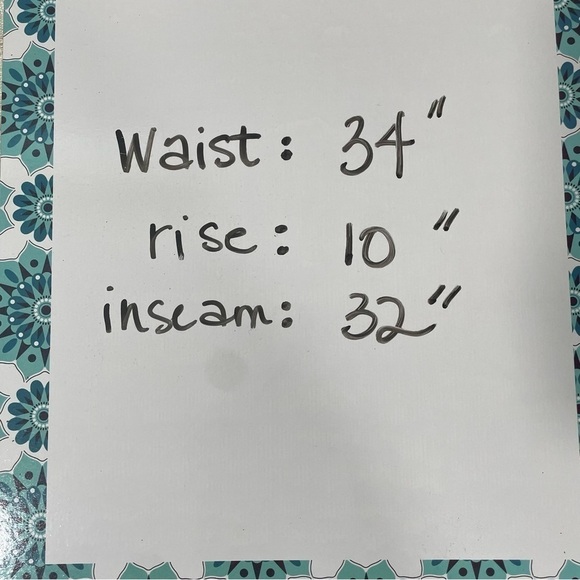 Waist: 34"
rise: 10"
inseam: 32"